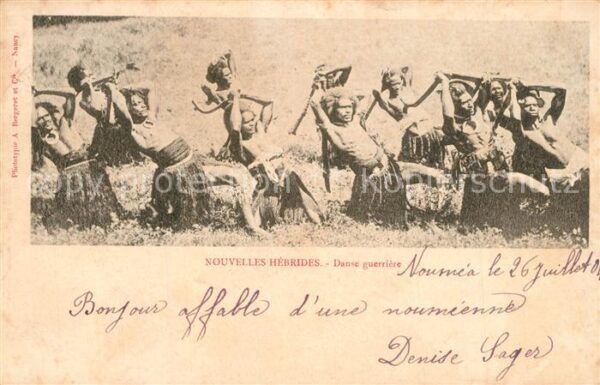 Phototypie A. Bergeret et Cie. — Nancy
copy protection Kopierschutz
NOUVELLES HÉBRIDES. - Danse guerrière
Nouméa le 26 Juillet 01
Bonjour affable d'une nouméenne
Denise Sager